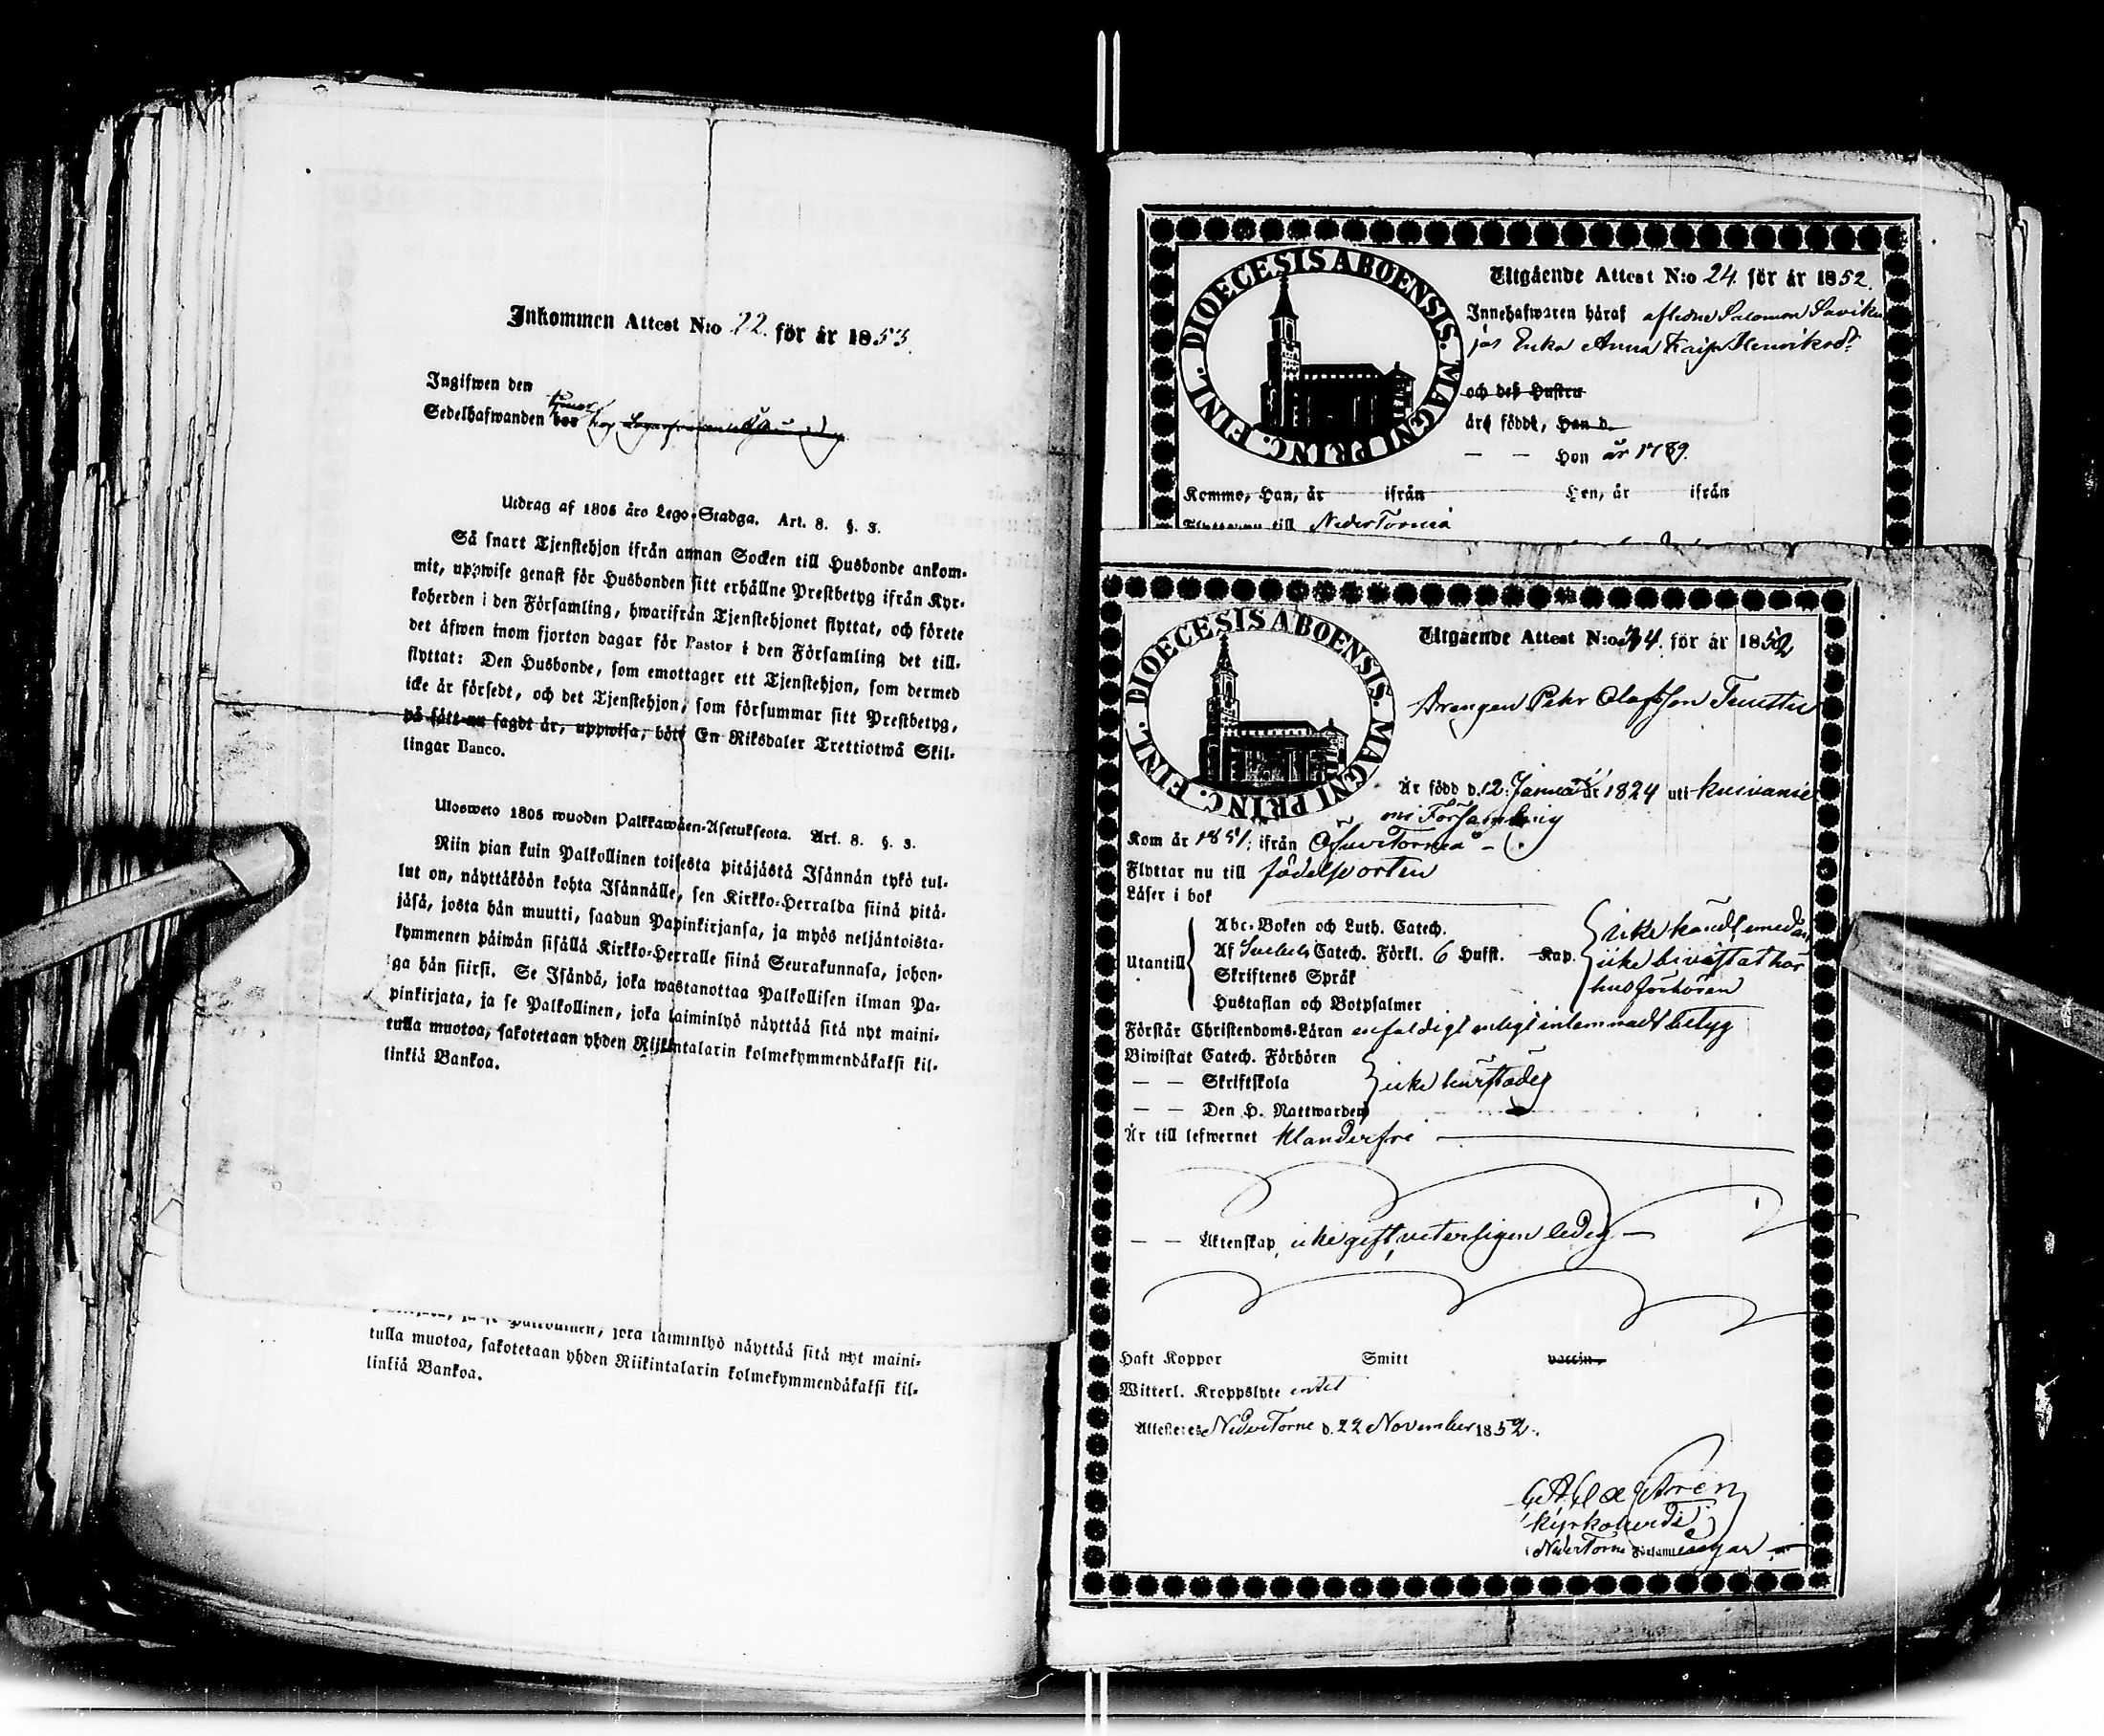 Inkommen Attest N:o 22. för år 1853.
Ingifwen den
Sedelhafwanden bor hos
Utdrag af 1805 års Lego-Stadga. Art. 8. §. 3.
Så snart Tjenstehjon ifrån annan Socken till Husbonde ankom-
mit, uppwise genast för Husbonden sitt erhållne Prestbetyg ifrån Kyr-
koherden i den Församling, hwarifrån Tjenstehjonet flyttat, och förete
det äfwen inom fjorton dagar för Pastor i den Församling det till-
flyttat: Den Husbonde, som emottager ett Tjenstehjon, som dermed
icke är försedt, och det Tjenstehjon, som försummar sitt Prestbetyg,
på sätt nu sagdt är, uppwisa, böte En Riksdaler Trettiotwå Skil-
lingar Banco.
Ulosweto 1805 wuoden Palkkawäen-Asetuksesta. Art. 8. §. 3.
Niin pian kuin Palkollinen toisesta pitäjästä Isännän tykö tul-
lut on, näyttäköön kohta Isännälle, sen Kirkko-Herralda siinä pitä-
jäsä, josta hän muutti, saadun Papinkirjansa, ja myös neljäntoista-
kymmenen päiwän sisällä Kirkko-Herralle siinä Seurakunnasa, johon-
ga hän siirsi. Se Isändä, joka wastanottaa Palkollisen ilman Pa-
pinkirjata, ja se Palkollinen, joka laiminlyö näyttää sitä nyt maini-
tulla muotoa, sakotetaan yhden Riikintalarin kolmekymmendäkaksi kil-
linkiä Bankoa.
joka laiminlyö näyttää sitä nyt maini-
tulla muotoa, sakotetaan yhden Riikintalarin kolmekymmendäkaksi kil-
linkiä Bankoa.
DIOECESIS ABOENSIS. MAGNI PRINC. FINL.
Utgående Attest N:o 24. för år 1852.
Innehafwaren häraf aflidne Salomon
Enka Anna Kajsa Henriksdr
och deß Hustru
äro födde, Han d.
— — Hon år 1789.
Kommo, Han, år ifrån Hon, år ifrån
Flyttar nu till NederTorneå
DIOECESIS ABOENSIS. MAGNI PRINC. FINL.
Utgående Attest N:o 74. för år 1852
Drengen Pehr Olofsson
Är född d. 12. Januari år 1824 uti Kuivanie
mi Församling
Kom år 1851. ifrån ÖfverTorneå
Flyttar nu till födelseorten
Läser i bok
Utantill
Abc-Boken och Luth. Catech.
Af Svebelii Catech. Förkl. 6 Hufst. Kap.
Skriftenes Språk
Hustaflan och Botpsalmer
icke kändt, emedan
icke bivistat här
husförhören
Förstår Christendoms-Läran enfaldigt enligt inlemnadt betyg
Biwistat Catech. Förhören
— — Skriftskola
— — Den H. Nattwarden
icke härstädes
Är till lefwernet klanderfri
— — Äktenskap, icke gift, veterligen ledig
Haft Koppor Smitt vaccin.
Witterl. Kroppslyte intet
Attesteres NederTorne d. 22 November 1852.
Kyrkoherde
i NederTorne Församlingar